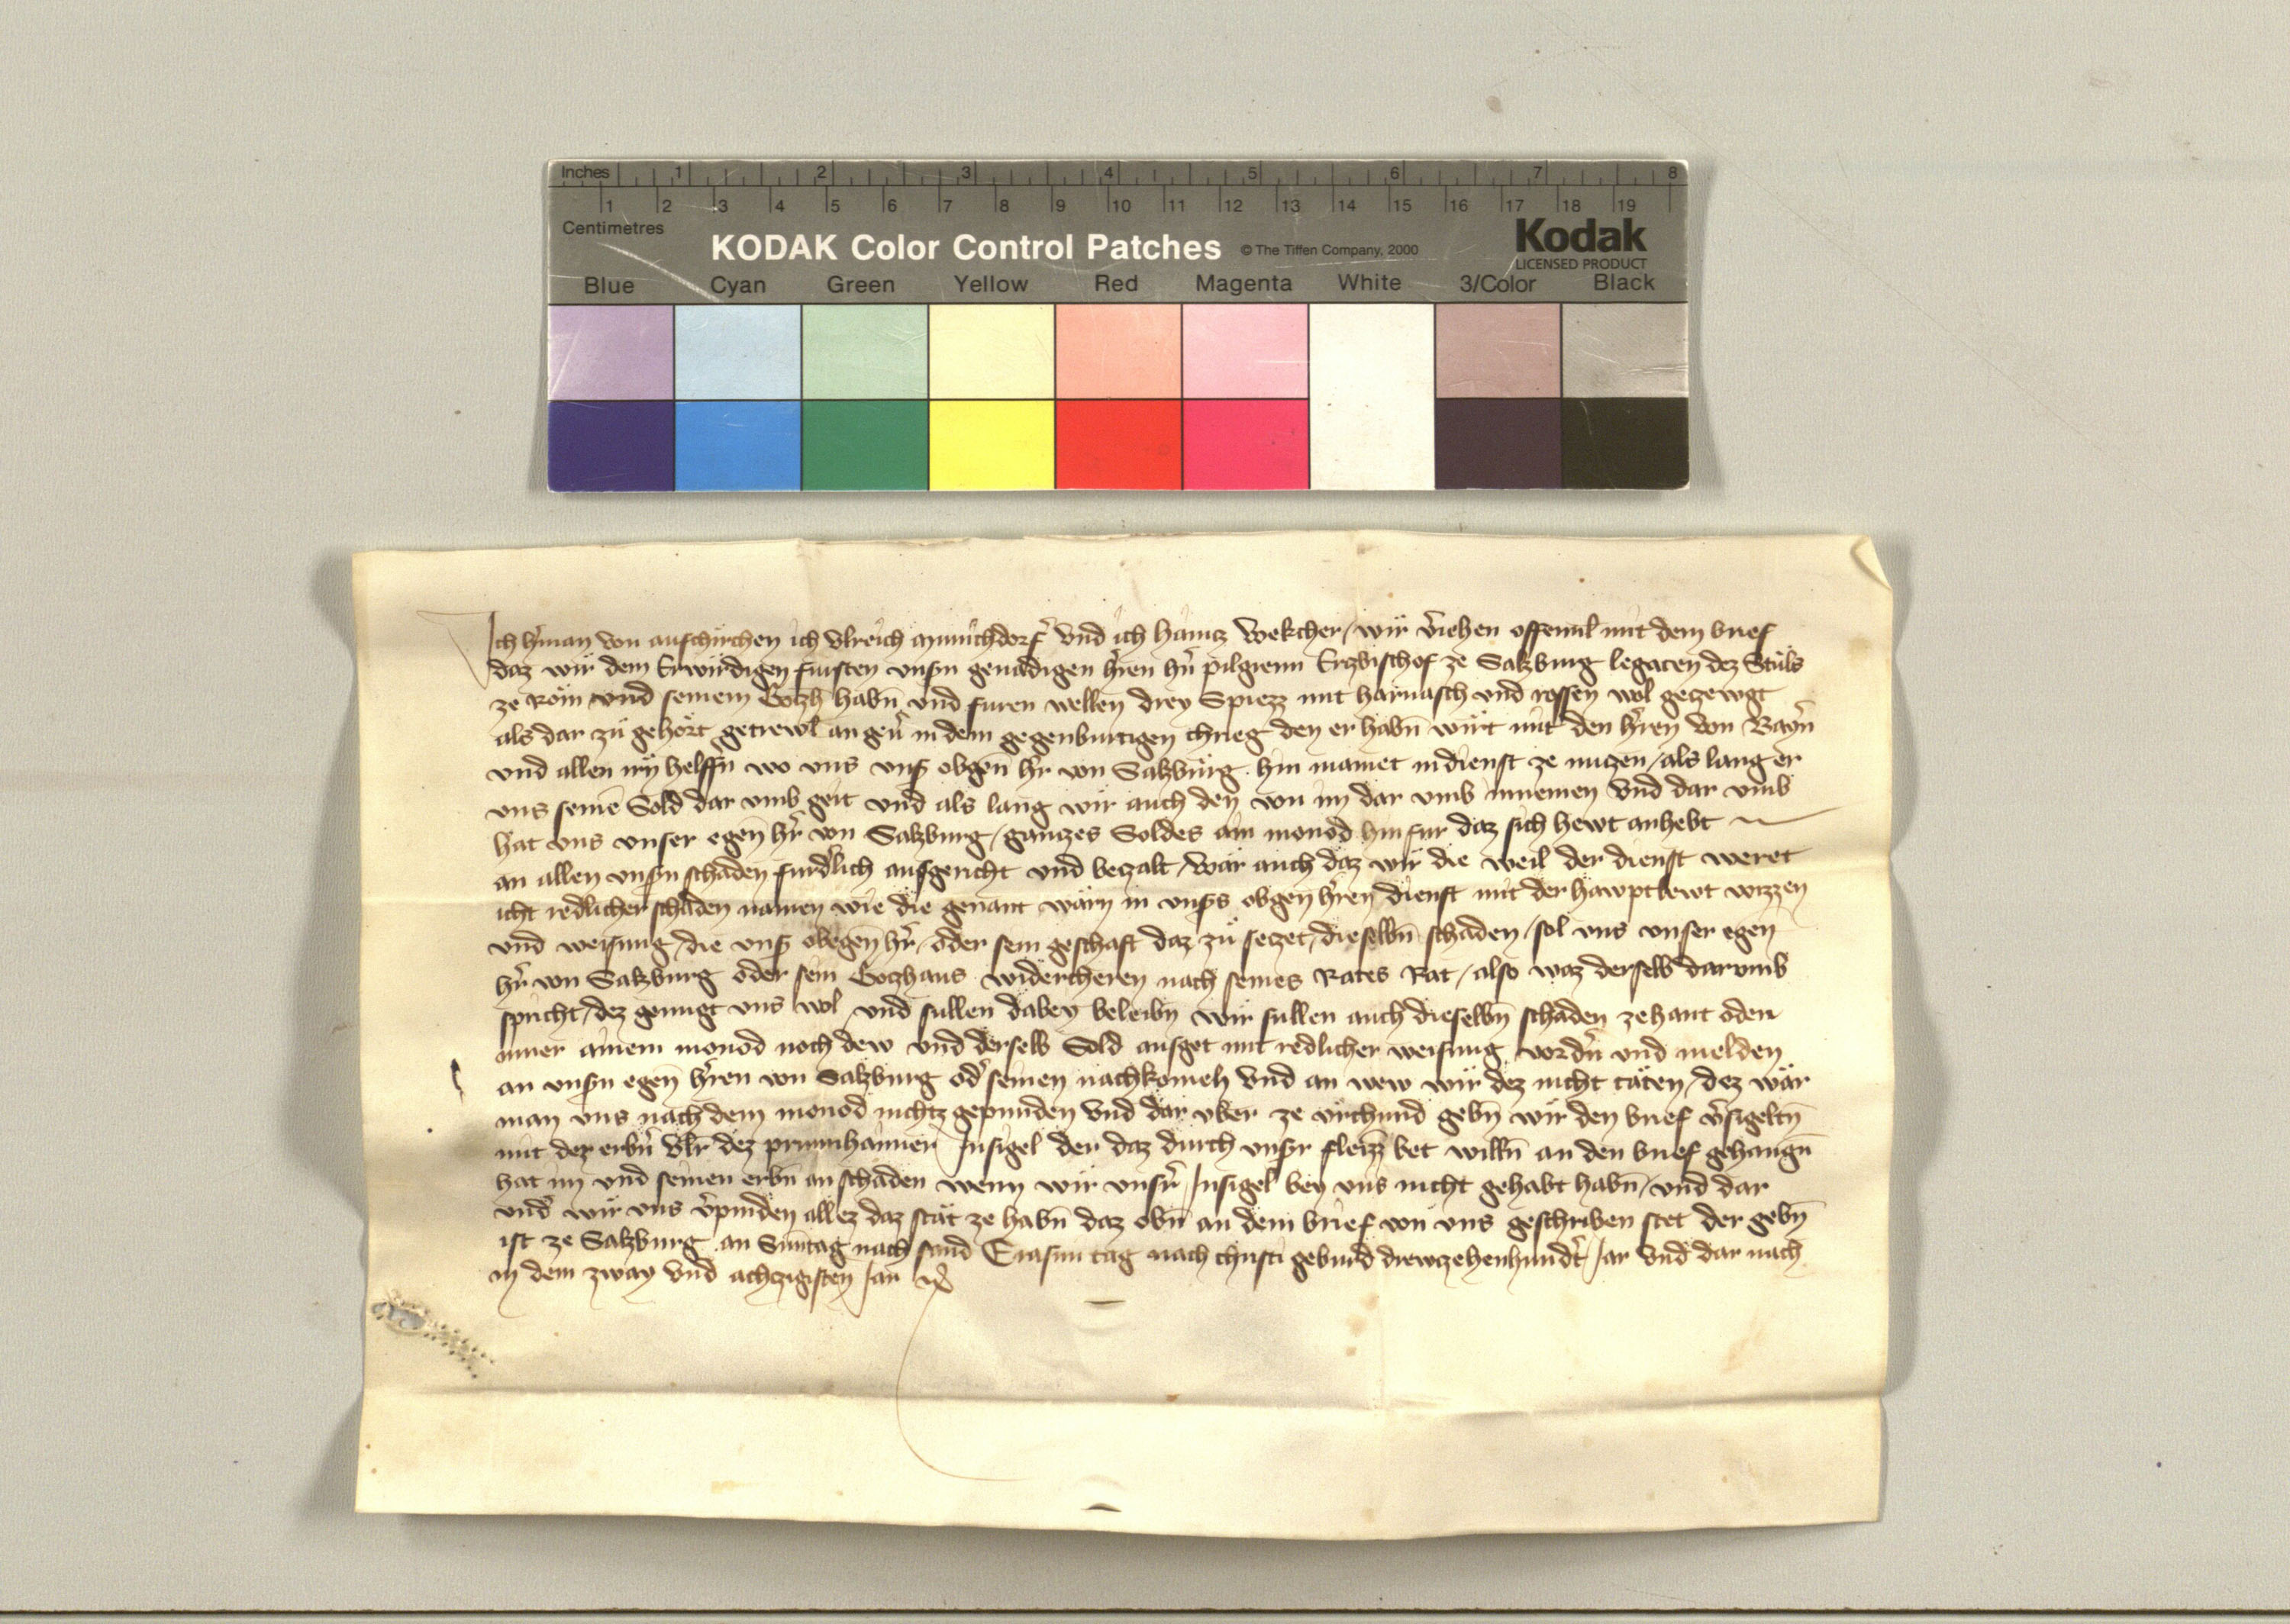 Inches 1 2 3 4 5 6 7 8
1 2 3 4 5 6 7 8 9 10 11 12 13 14 15 16 17 18 19
Centimetres
KODAK Color Control Patches © The Tiffen Company, 2000 Kodak
LICENSED PRODUCT
Blue Cyan Green Yellow Red Magenta White 3/Color Black
Ich h̄man von aufchirchen ich Vlreich vnd ich Haincz Wekcher / wir v̄iehen offenn̄l mit dem brief
daz wir dem Erwirdigen fursten vnsm genadigen h̄ren hn̄ pilgreim Erzbischof ze Salzburg legaten dez Stuls
ze Rom vnd seinem Gotzh habn̄ vnd furen wellen drey Spiezz mit harnasch vnd rossen wol geczewgt
als dar zu gehort getrewl̄ an geu̅ in dem gegenburtigen chrieg den er habn̄ wirt mit den h̄ren von Bayn̄
vnd allen irn̄ helffn̄ wo vns vnß obgen̄ hr̄ von Salzburg hin mainet in dienst ze nuczen / als lang er
vns seinē Sold dar vmb geit vnd als lang wir auch den von im dar vmb innemen vnd dar vmb
hat vns vnser egen̄ hr̄ von Salzburg / ganczes Soldes ain monod hinfur daz sich hewt anhebt
an allen vnsn schaden furdlich ausgericht vnd beczalt / Wär auch daz wir die weil der dienst weret
icht redlicher schaden namen wie die genant wärn in vnßs obgen̄ h̄ren dienst mit der hawptlewt wizzen
vnd weisung / die vnß obegen̄ hr̄ / oder sein geschäft daz zu seczet / dieselbn̄ schäden / sol vns vnser egen̄
hr̄ von Salzburg oder sein Gotzhaus widercheren nach seines Rates Rat / also waz derselb darvmb
spricht / dez genugt vns wol vnd sullen dabey beleibn̄ wir sullen auch dieselbn̄ schäden zehant oder
inner ainem monod noch dew vnd derselb Sold ausget mit redlicher weisung vordn̄ vnd melden
an vnsn egen̄ h̄ren von Salzburg od̄ seinen nachkomen̄ vnd an wew wir dez nicht täten / dez wär
man vns nach dem monod nichtz gepunden vnd dar vber ze vrchund gebn̄ wir den brief v̄sigeltn̄
mit dez erbn̄ Vlr̄ dez Insigel der daz durch vnsr fleizz bet willn̄ an den brief gehangn̄
hat im vnd seinen erbn̄ an schaden wenn wir vnsr̄ Insigel bey vns nicht gehabt habn̄ / vnd dar
vnd̄ wir vns v̄pinden allez daz stät ze habn̄ daz obn̄ an dem brief von vns geschriben stet der gebn̄
ist ze Salzburg an Suntag nach sand Erasm tag nach christi geburd drewzehenhundt̄ Jar vnd dar nach
in dem zway vnd achczigisten Jar